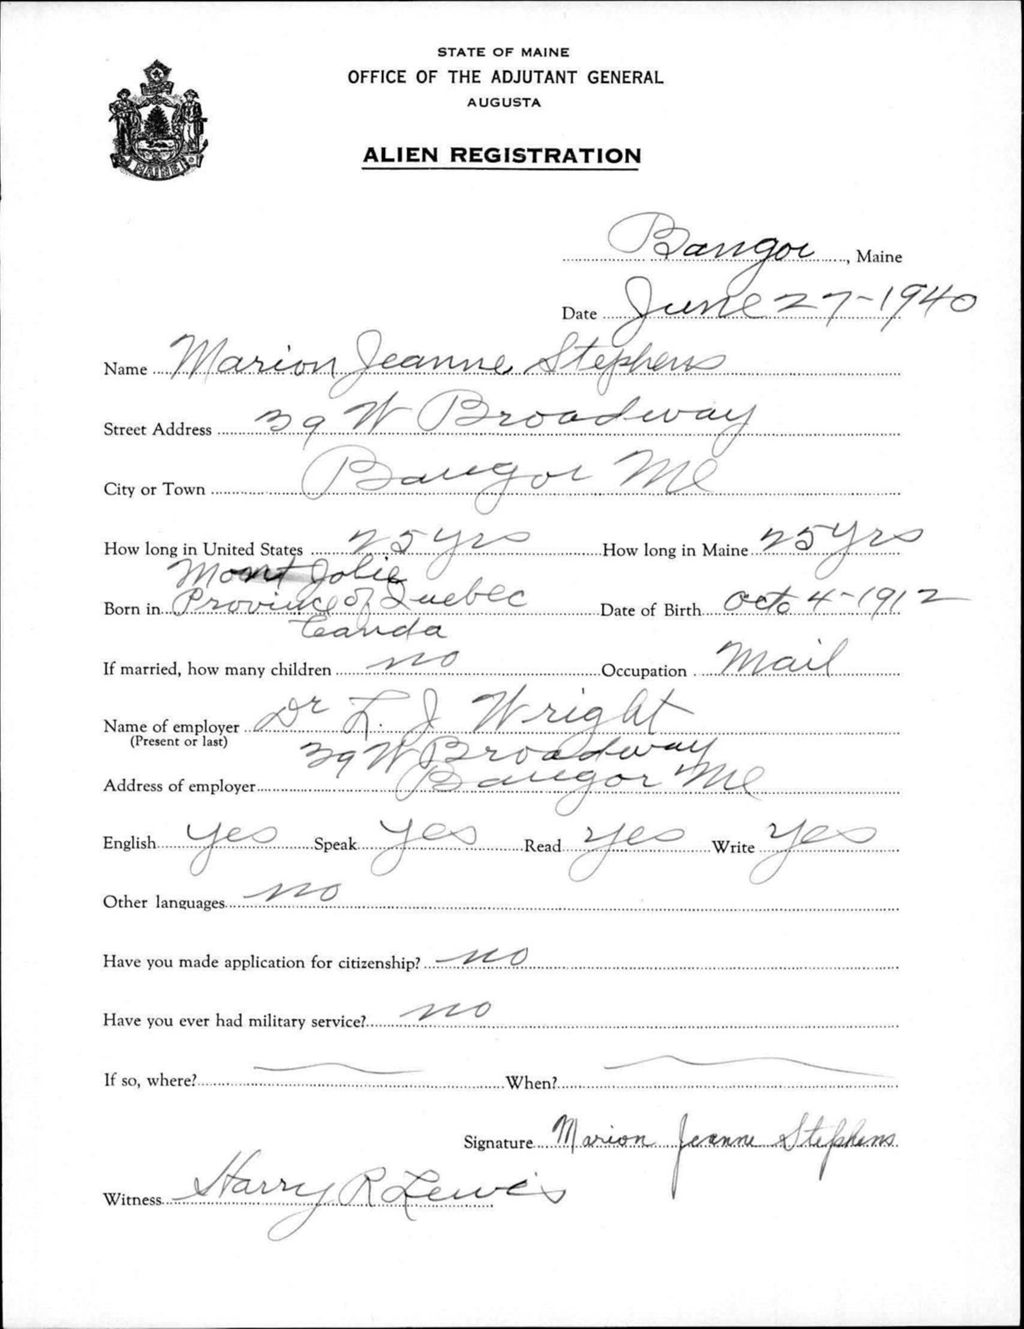 STATE OF MAINE
OFFICE OF THE ADJUTANT GENERAL
AUGUSTA
ALIEN REGISTRATION
MAINE
Bangor, Maine
Date June 27-1940
Name Marion Jeanne Stephens
Street Address 39 W Broadway
City or Town Bangor Me
How long in United States 25 yrs How long in Maine 25 yrs
Mont Jolie
Born in Province of Quebec Date of Birth Oct 4-1912
Canda
If married, how many children no Occupation Maid
Name of employer Dr L. J Wright
(Present or last)
39 W Broadway
Address of employer Bangor Me
English yes Speak yes Read yes Write yes
Other languages no
Have you made application for citizenship? no
Have you ever had military service? no
If so, where? When?
Signature Marion Jeanne Stephens
Witness Harry R Lewis